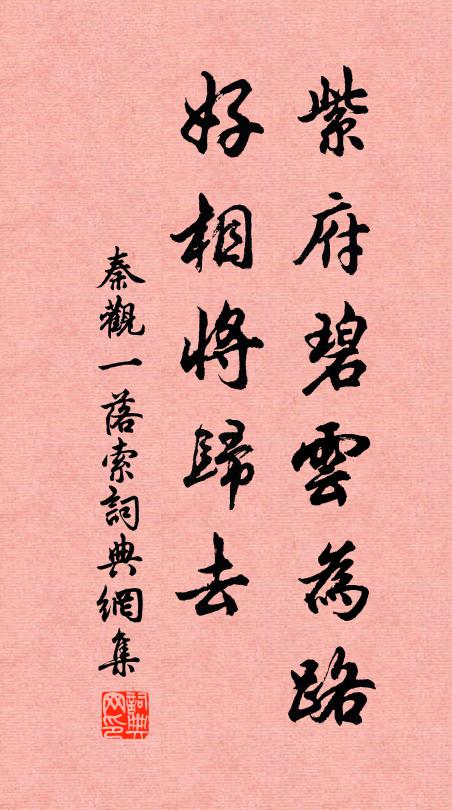 紫府碧雲為路
好相將歸去
秦觀一落索詞典網集
詞典网印